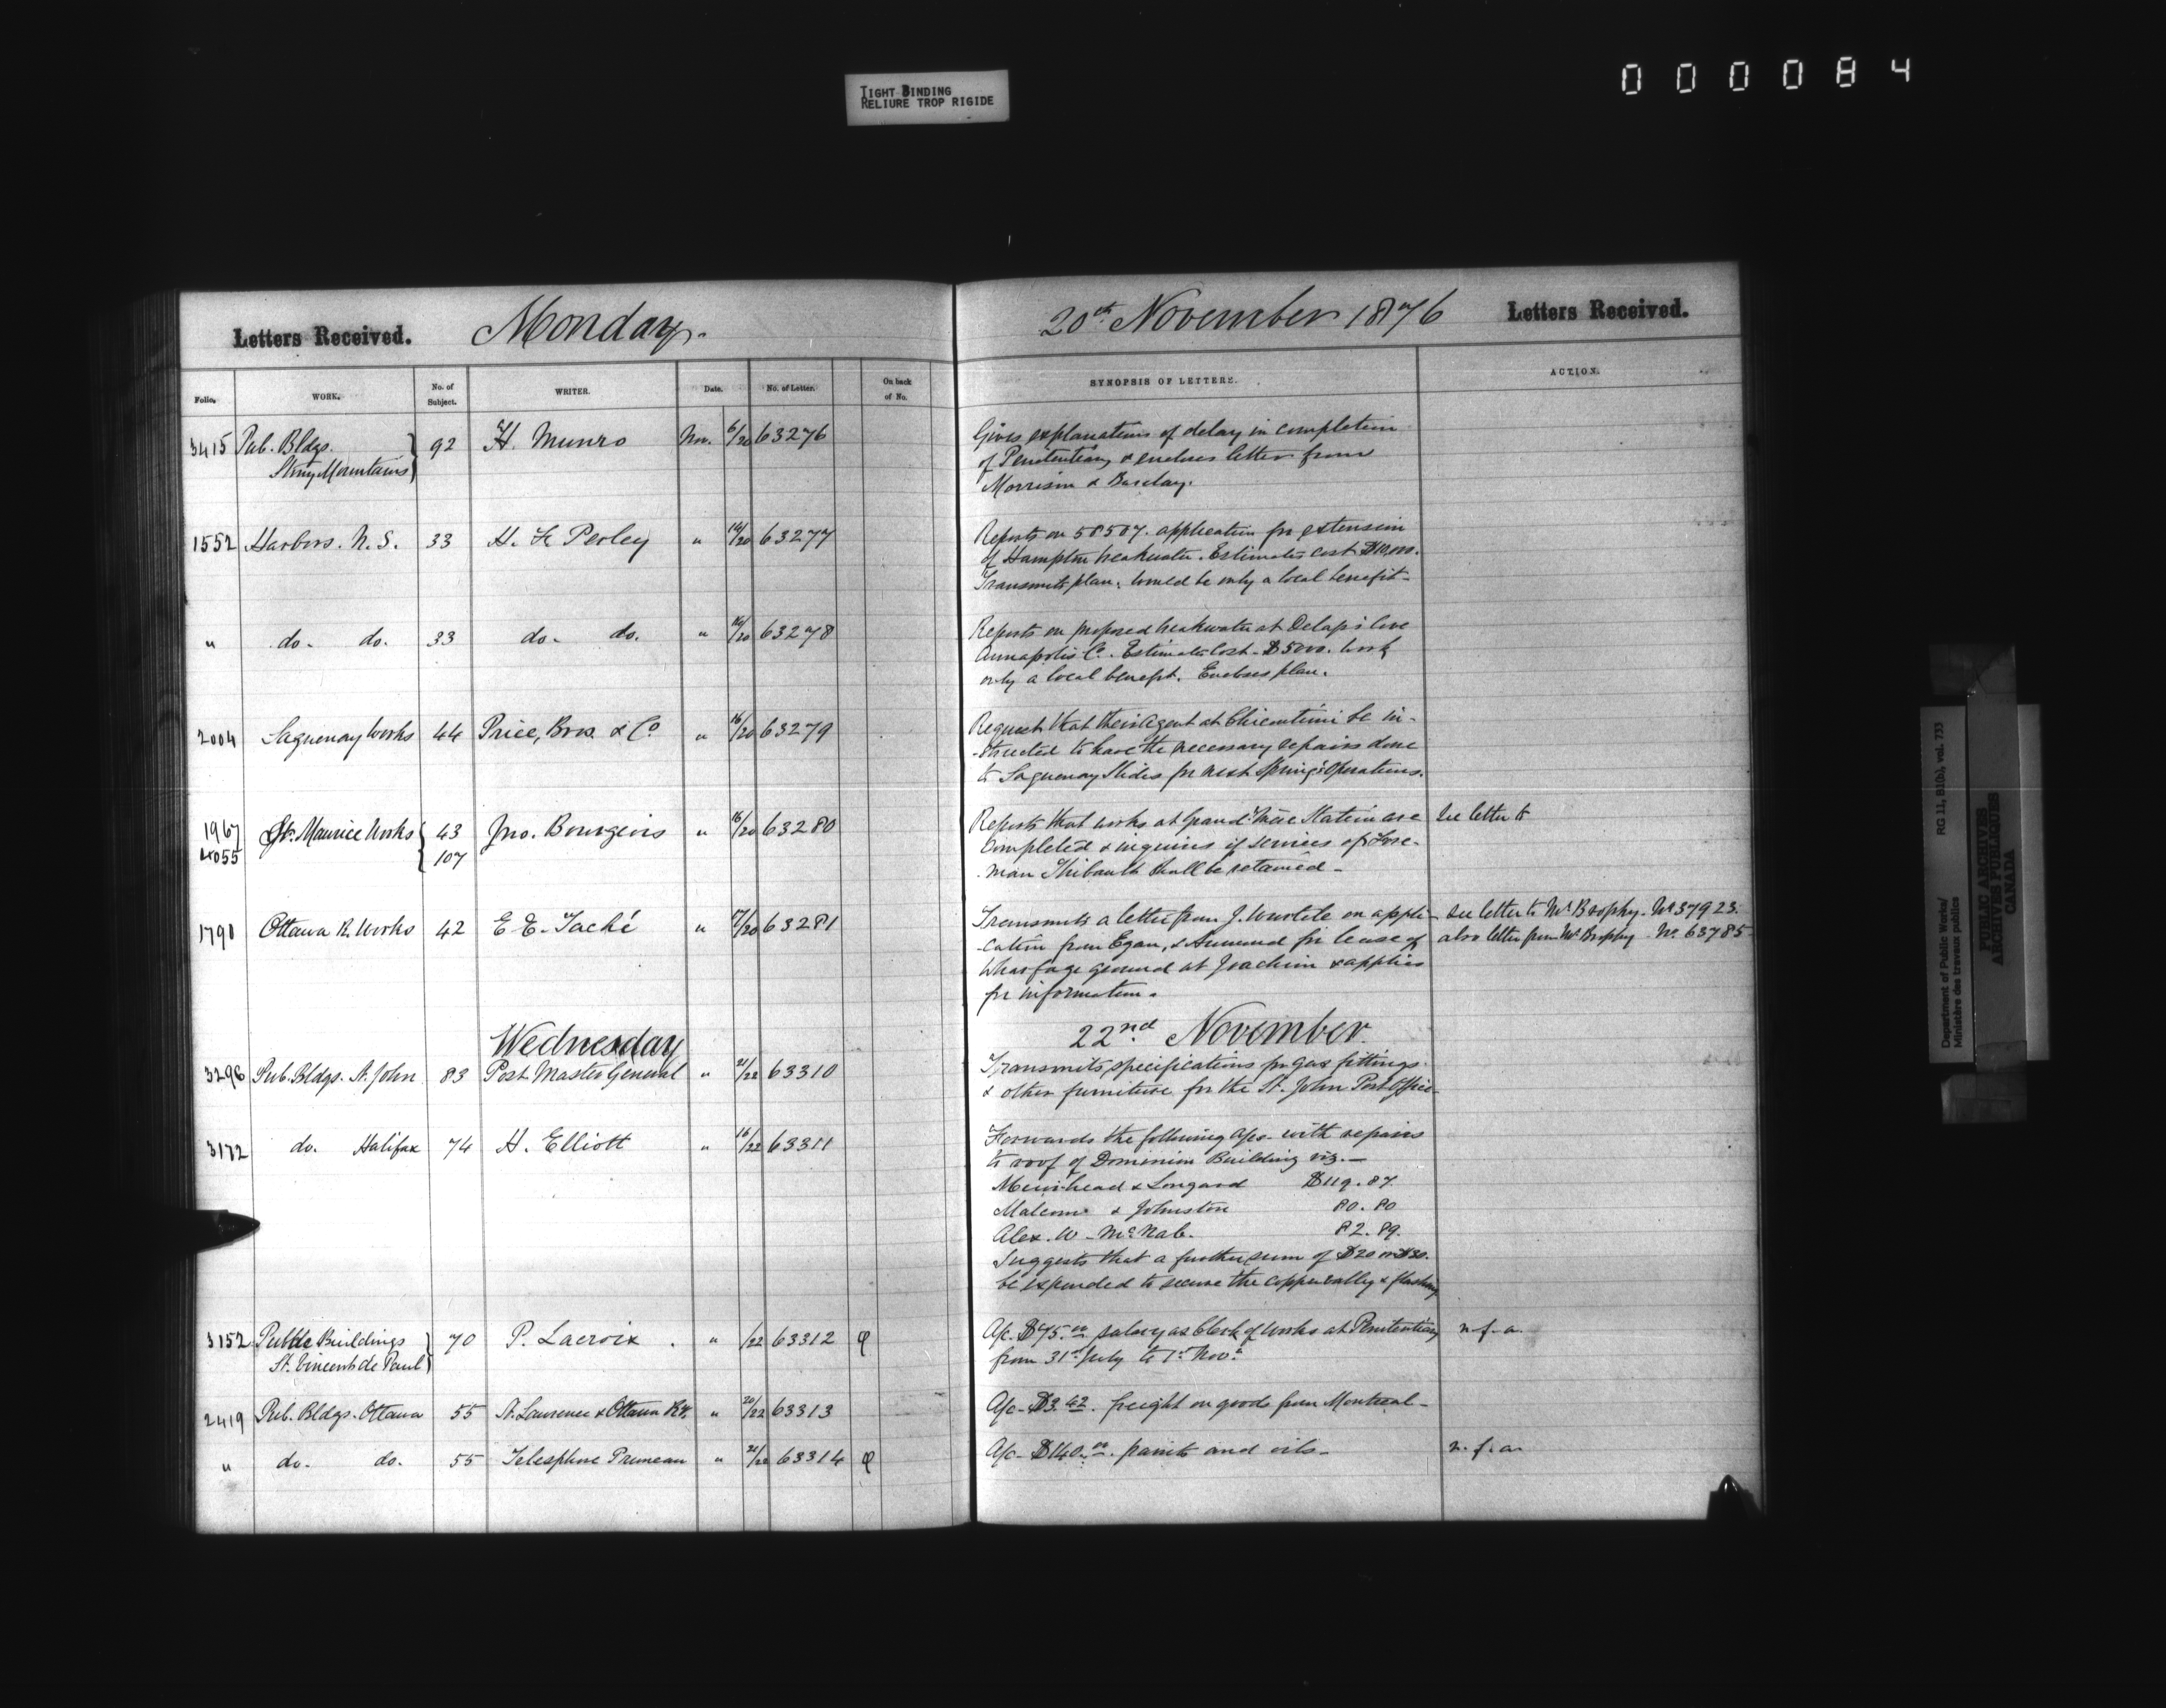 TIGHT BINDING
RELIURE TROP RIGIDE
000084
Letters Received. Monday. 20th November 1876 Letters Received.
Folio. WORK. No. of Subject. WRITER. Date. No. of Letter. On back of No. SYNOPSIS OF LETTERS. ACTION.
3415 Pub. Bldgs. 92 H. Munro Nov. 6/20 63276 Gives explanations of delay in completion
Stony Mountains of Penitentiary & encloses letter from
Morrison & Barclay.
1552 Harbors. N. S. 33 H. F. Perley " 16/20 63277 Reports on 58507. application for extension
of Hampton breakwater. Estimates cost $10,000.
Transmits plan. Would be only a local benefit-
" do. do. 33 do. do. " 16/20 63278 Reports on proposed breakwater at Delap's Cove
Annapolis Co. Estimate Cost- $5000. Work
only a local benefit. Encloses plan.
2004 Saguenay Works 44 Price, Bros. & Co. " 16/20 63279 Request that their Agent at Chicoutimi be in-
-structed to have the necessary repairs done
to Saguenay Slides for next Spring's Operations.
1967 St. Maurice Works 43 Jno. Bourgeois " 16/20 63280 Reports that works at Grand Mère Station are See letter to
4055 107 Completed & inquires if services of Fore-
man Thibault shall be retained-
1791 Ottawa R. Works 42 E. E. Taché " 17/20 63281 Transmits a letter from J. Wurtele on appli- See letter to Mr Brophy. No 37923.
cation from Egan, & Armand for lease of also letter from Mr Brophy No. 63785
Wharfage ground at Joachim & applies
for information.
Wednesday 22nd November.
3296 Pub. Bldgs. St. John 83 Post Master General " 21/22 63310 Transmits specifications for gas fittings
& other furniture for the St. John Post Office-
3172 do. Halifax 74 H. Elliott " 16/22 63311 Forwards the following a/cs- with repairs
to roof of Dominion Building viz.-
Muirhead & Longard $119.87
Malcom & Johnston 80.80
Alex. W. McNab. 82.89.
Suggests that a further sum of $20 or $30.
be expended to secure the copper valley & flashing
3152 Public Buildings 70 P. Lacroix. " /22 63312 A/c. $75.00 salary as Clerk of Works at Penitentiary n.f.a.
St. Vincent de Paul from 31st July to 1st Nov.
2419 Pub. Bldgs. Ottawa 55 St. Lawrence & Ottawa Ry. " 20/22 63313 A/c- $3.42. freight on goods from Montreal-
" do. do. 55 Telesphore Pruneau " 21/22 63314 A/c- $140.00. paints and oils- n.f.a.
Department of Public Works/ RG 11, B1(b), vol. 733
Ministère des travaux publics
PUBLIC ARCHIVES
ARCHIVES PUBLIQUES
CANADA